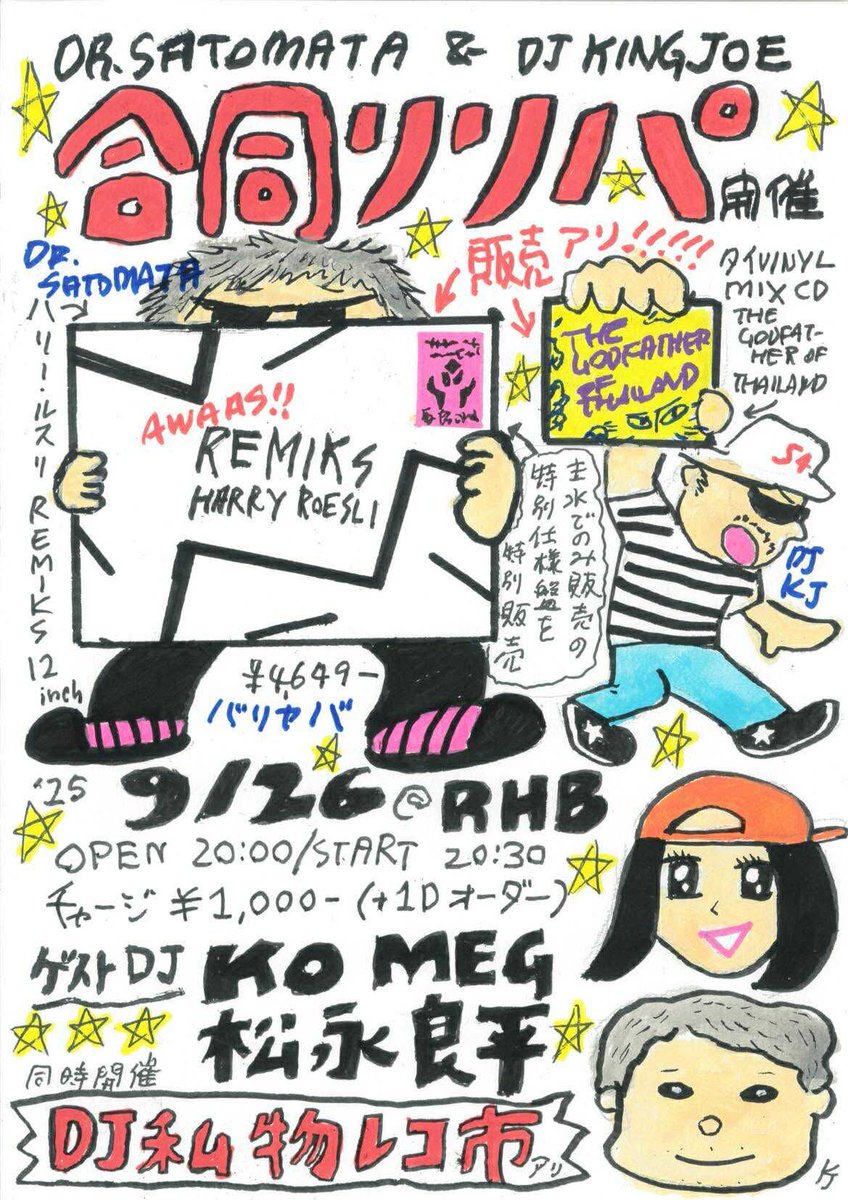 DR. SATOMATA & DJ KING JOE
合同リリパ
開催
DR.
SATOMATA
ハリー・ルスリ REMIKS 12
inch
販売アリ!!!!!
タイVINYL
MIX CD
THE
GODFAT-
HER OF
THAILAND
THE
GODFATHER
OF
THAILAND
AWAAS!!
REMIKS
HARRY ROESLI
圭水でのみ販売の
特別仕様盤を
特別販売
S4
DJ
KJ
¥4,649-
バリヤバ
'25
9/26@RHB
OPEN 20:00/START 20:30
チャージ ¥1,000- (+1Dオーダー)
ゲストDJ
KO MEG
松永良平
同時開催
DJ私物レコ市
アリ
KJ